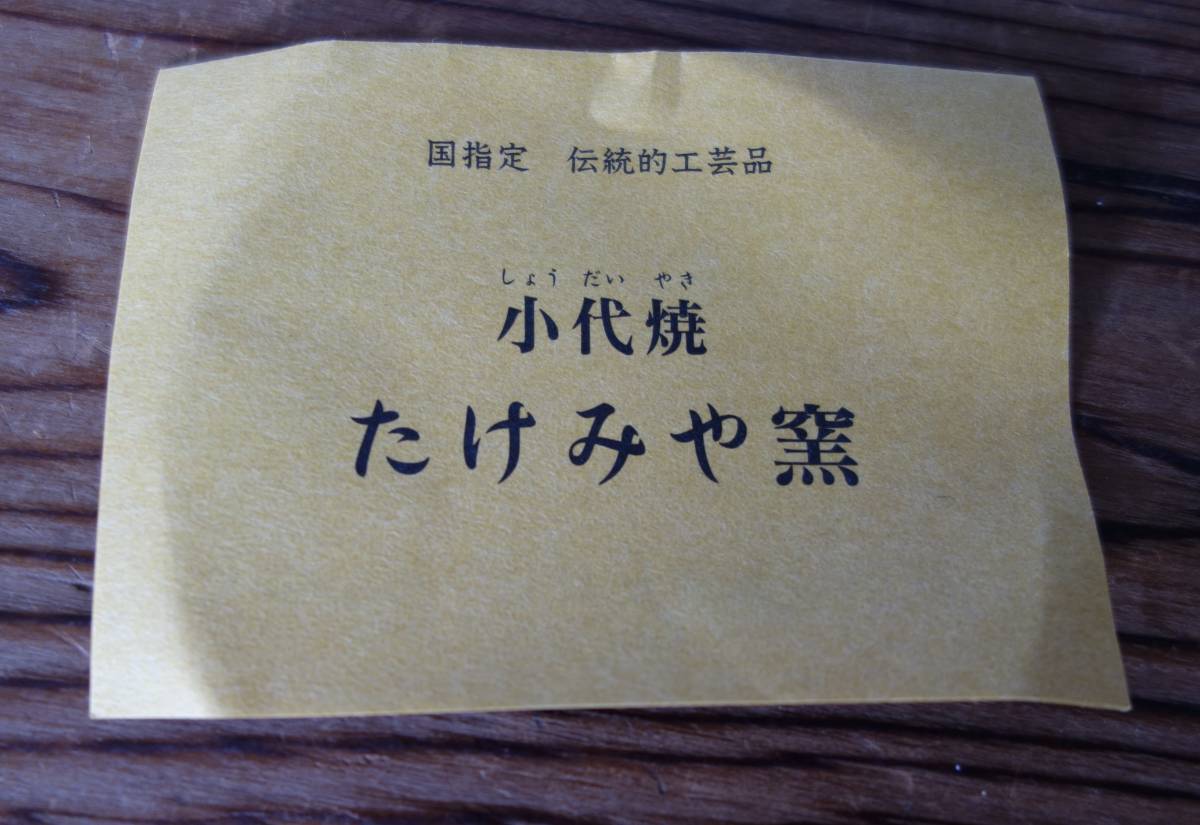 国指定　伝統的工芸品
しょう だい やき
小代焼
たけみや窯